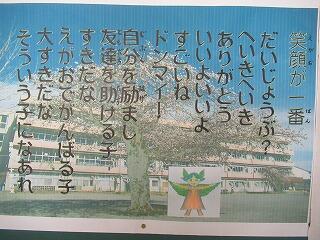 笑顔が一番
えがお ばん
だいじょうぶ？
へいきへいき
ありがとう
いいよいいよ
すごいね
ドンマイー
自分を励まし
友達を助ける子
すきだな
えがおでがんばる子
大すきだな
そういう子になあれ